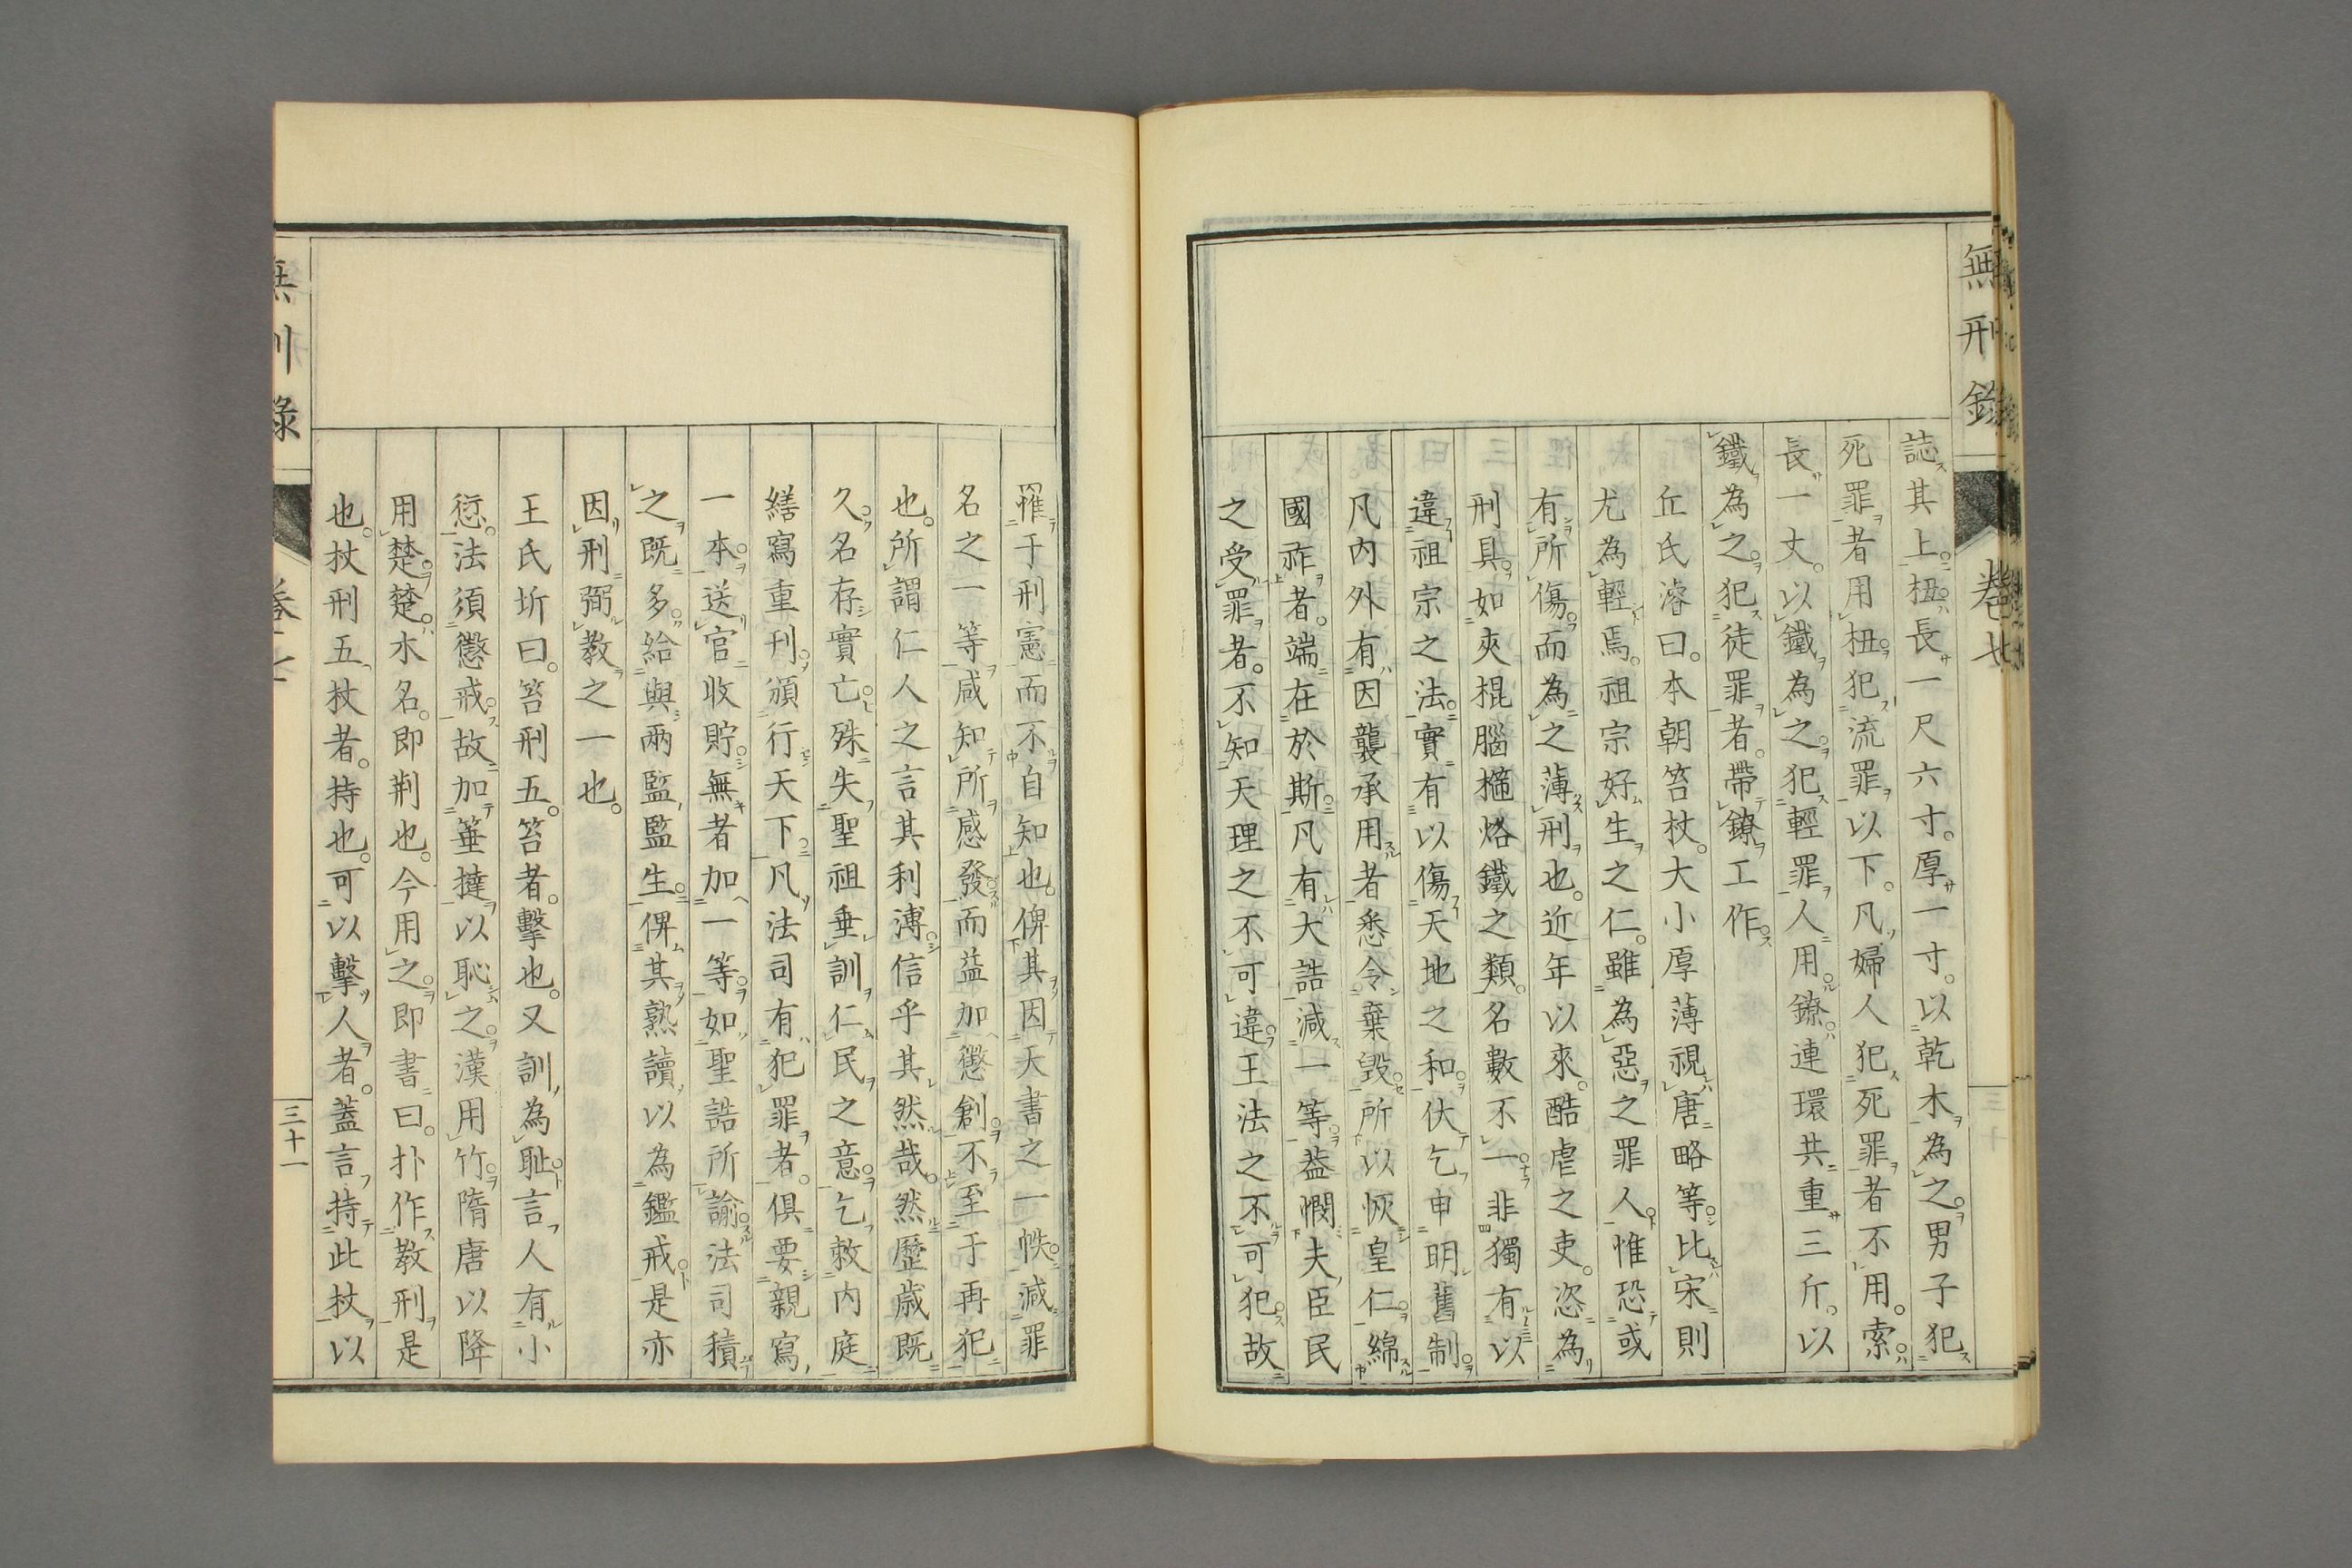 無刑錄
卷七
誌其上。杻長一尺六寸。厚一寸。以乾木為之。男子犯
死罪者用杻。犯流罪以下。凡婦人犯死罪者不用。索。
長一丈。以鐵為之。犯輕罪人用。鐐連環共重三斤。以
鐵為之。犯徒罪者。帶鐐工作。
丘氏濬曰。本朝笞杖。大小厚薄視唐略等。比宋則
尤為輕焉。祖宗好生之仁。雖為惡之罪人。惟恐或
有所傷。而為之薄刑也。近年以來。酷虐之吏。恣為
刑具。如夾棍腦箍烙鐵之類。名數不一。非獨有以
違祖宗之法。實有以傷天地之和。伏乞申明舊制。
凡內外有因襲承用者。悉令棄毀。所以恢皇仁。綿
國祚者。端在於斯。凡有大誥減一等。葢憫夫臣民
之受罪者。不知天理之不可違。王法之不可犯。故
罹于刑憲。而不自知也。俾其因天書之一帙。減罪
名之一等。咸知所感發。而益加懲創。不至于再犯
也。所謂仁人之言其利溥。信乎其然哉。然歷歲既
久。名存實亡。殊失聖祖垂訓仁民之意。乞敕內庭
繕寫重刊。頒行天下。凡法司有犯罪者。俱要親寫
一本。送官收貯。無者加一等。如聖誥所諭。法司積
之既多。給與兩監監生。俾其熟讀以為鑑戒。是亦
因刑弼教之一也。
王氏圻曰。笞刑五。笞者。擊也。又訓為耻。言人有小
愆。法須懲戒。故加箠撻以恥之。漢用竹。隋唐以降
用楚。楚。木名。即荆也。今用之。即書曰。扑作教刑。是
也。杖刑五。杖者。持也。可以擊人者。蓋言持此杖以
三十一